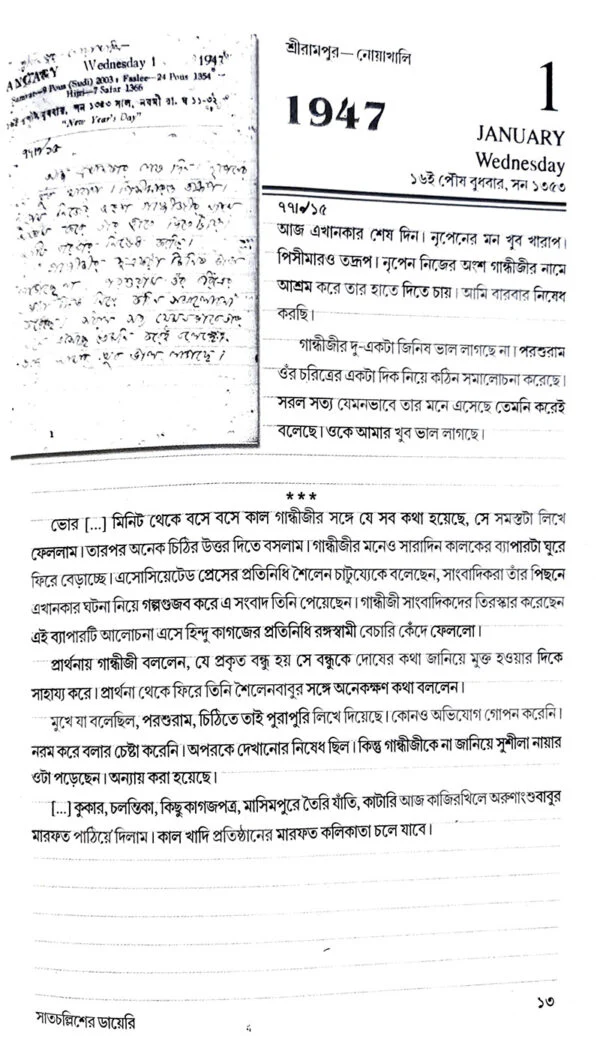 Wednesday 1 1947
Samvat—9 Pous (Sudi) 2003: Faslee—24 Pous 1354
Hijri—7 Safar 1366
"New Year's Day"
শ্রীরামপুর— নোয়াখালি
1947
1
JANUARY
Wednesday
১৬ই পৌষ বুধবার, সন ১৩৫৩
আজ এখানকার শেষ দিন। নৃপেনের মন খুব খারাপ।
পিসীমারও তদ্রূপ। নৃপেন নিজের অংশ গান্ধীজীর নামে
আশ্রম করে তার হাতে দিতে চায়। আমি বারবার নিষেধ
করছি।
গান্ধীজীর দু-একটা জিনিষ ভাল লাগছে না। পরশুরাম
ওঁর চরিত্রের একটা দিক নিয়ে কঠিন সমালোচনা করেছে।
সরল সত্য যেমনভাবে তার মনে এসেছে তেমনি করেই
বলেছে। ওকে আমার খুব ভাল লাগছে।
***
ভোর [...] মিনিট থেকে বসে বসে কাল গান্ধীজীর সঙ্গে যে সব কথা হয়েছে, সে সমস্তটা লিখে
ফেললাম। তারপর অনেক চিঠির উত্তর দিতে বসলাম। গান্ধীজীর মনেও সারাদিন কালকের ব্যাপারটা ঘুরে
ফিরে বেড়াচ্ছে। এসোসিয়েটেড প্রেসের প্রতিনিধি শৈলেন চাটুয্যেকে বলেছেন, সাংবাদিকরা তাঁর পিছনে
এখানকার ঘটনা নিয়ে গল্পগুজব করে এ সংবাদ তিনি পেয়েছেন। গান্ধীজী সাংবাদিকদের তিরস্কার করেছেন
এই ব্যাপারটি আলোচনা এসে হিন্দু কাগজের প্রতিনিধি রঙ্গস্বামী বেচারি কেঁদে ফেললো।
প্রার্থনায় গান্ধীজী বললেন, যে প্রকৃত বন্ধু হয় সে বন্ধুকে দোষের কথা জানিয়ে মুক্ত হওয়ার দিকে
সাহায্য করে। প্রার্থনা থেকে ফিরে তিনি শৈলেনবাবুর সঙ্গে অনেকক্ষণ কথা বললেন।
মুখে যা বলেছিল, পরশুরাম, চিঠিতে তাই পুরাপুরি লিখে দিয়েছে। কোনও অভিযোগ গোপন করেনি।
নরম করে বলার চেষ্টা করেনি। অপরকে দেখানোর নিষেধ ছিল। কিন্তু গান্ধীজীকে না জানিয়ে সুশীলা নায়ার
ওটা পড়েছেন। অন্যায় করা হয়েছে।
[...] কুকার, চলন্তিকা, কিছু কাগজপত্র, মাসিমপুরে তৈরি যাঁতি, কাটারি আজ কাজিরখিলে অরুণাংশুবাবুর
মারফত পাঠিয়ে দিলাম। কাল খাদি প্রতিষ্ঠানের মারফত কলিকাতা চলে যাবে।
১৩
সাতচল্লিশের ডায়েরি